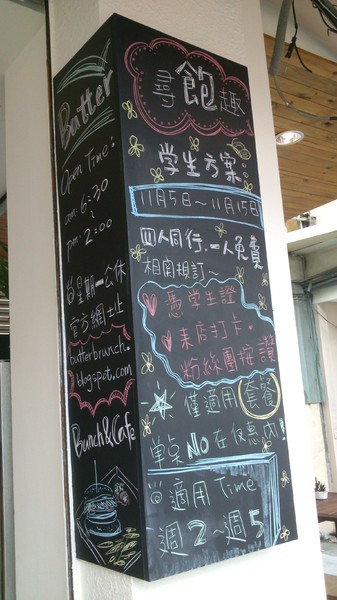 Butter
Open Time:
am: 6:30
~
pm: 2:00
星期一公休
官方網址
butterbrunch.
blogspot.com
Bunch&Cafe
尋飽趣
學生方案:
11月5日~11月15日
四人同行.一人免費
相關規訂~
憑學生證
來店打卡.
粉絲團按讚
僅適用套餐
單點NO在優惠內!
適用Time
週2~週5